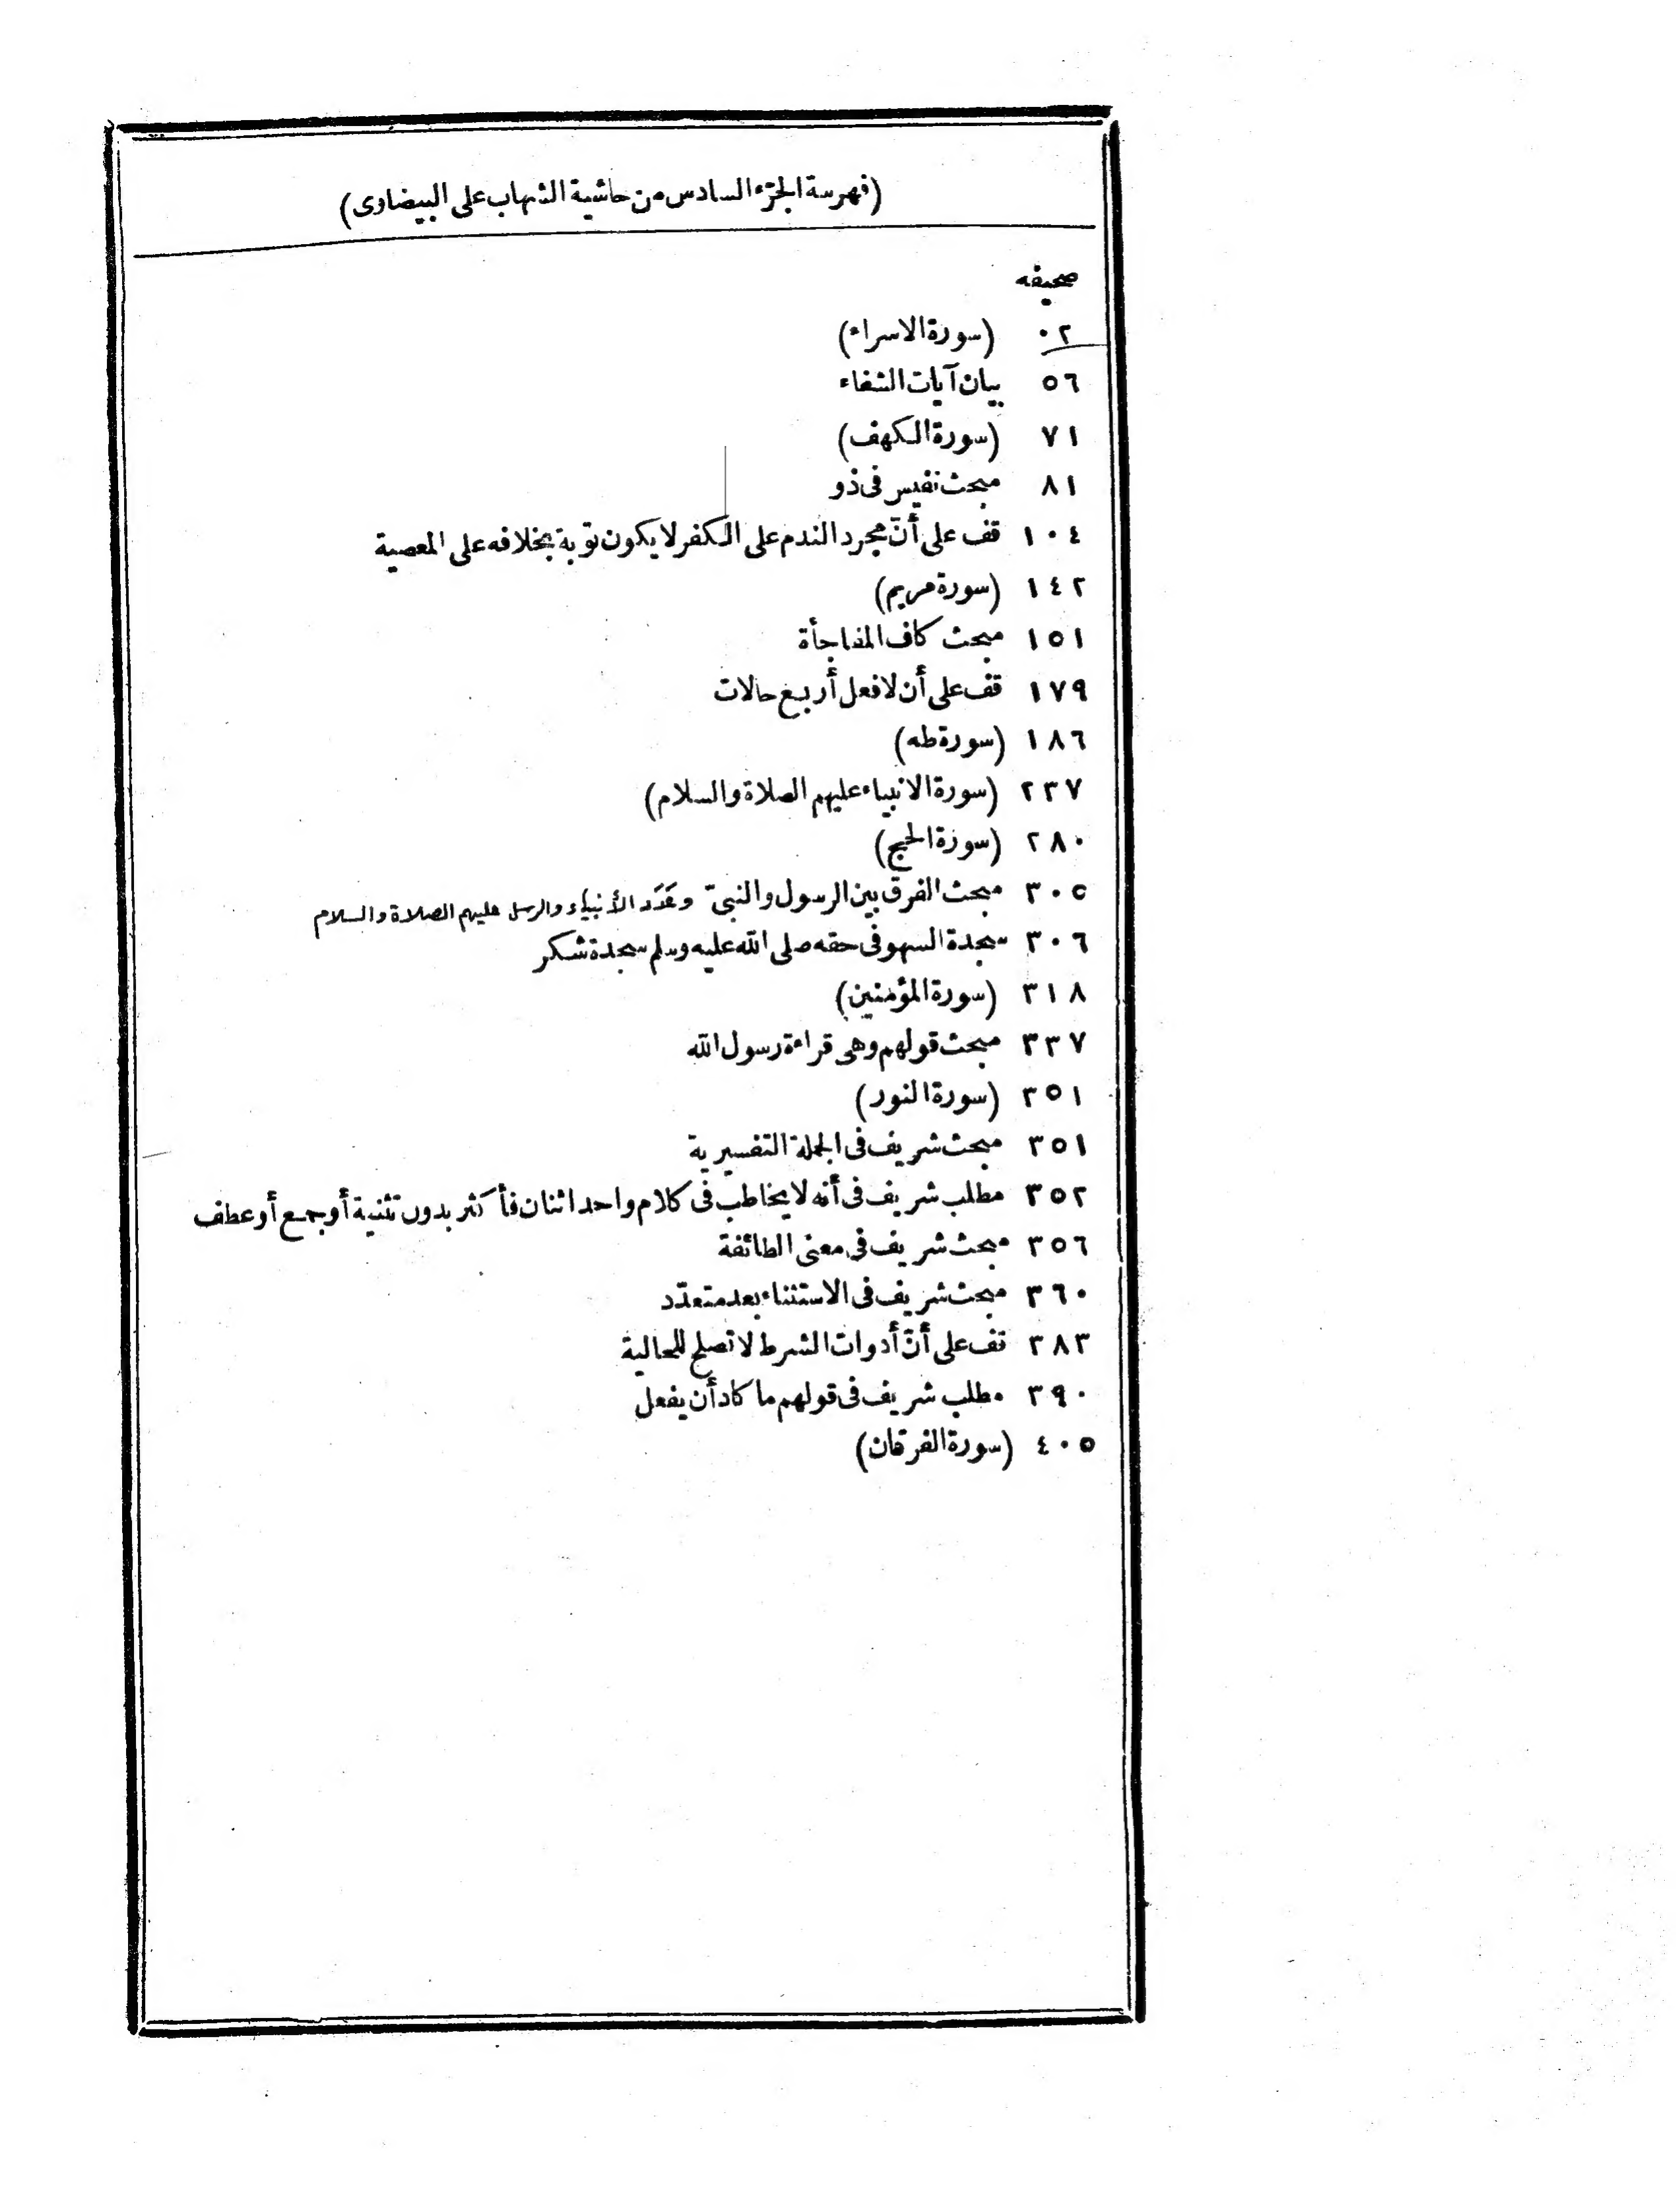 (فهرسة الجزء السادس من حاشية الشهاب على البيضاوى)
صحيفه
٠٢ (سورة الاسراء)
٥٦ بيان آيات الشفاء
٧١ (سورة الكهف)
٨١ مبحث نفيس فى ذو
١٠٤ قف على أنّ مجرد الندم على الكفر لا يكون توبة بخلافه على المعصية
١٤٢ (سورة مريم)
١٥١ مبحث كاف المفاجأة
١٧٩ قف على أن لافعل أربع حالات
١٨٦ (سورة طه)
٢٣٧ (سورة الانبياء عليهم الصلاة والسلام)
٢٨٠ (سورة الحج)
٣٠٥ مبحث الفرق بين الرسول والنبىّ وعَدَد الأنبياء والرسل عليهم الصلاة والسلام
٣٠٦ سجدة السهو فى حقه صلى الله عليه وسلم سجدة شكر
٣١٨ (سورة المؤمنين)
٣٣٧ مبحث قولهم وهى قراءة رسول الله
٣٥١ (سورة النور)
٣٥١ مبحث شريف فى الجملة التفسيرية
٣٥٢ مطلب شريف فى أنه لا يخاطب فى كلام واحد اثنان فأكثر بدون تثنية أو جمع أو عطف
٣٥٦ مبحث شريف فى معنى الطائفة
٣٦٠ مبحث شريف فى الاستثناء بعد متعدّد
٣٨٣ قف على أنّ أدوات الشرط لا تصلح للحالية
٣٩٠ مطلب شريف فى قولهم ما كاد أن يفعل
٤٠٥ (سورة الفرقان)